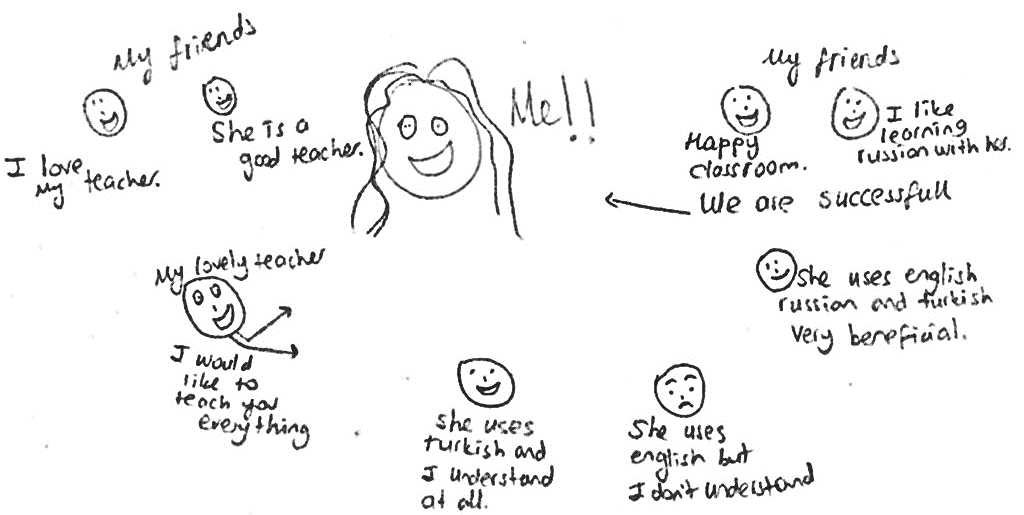 My friends
I love
my teacher.
She is a
good teacher.
Me!!
My friends
Happy
classroom.
I like
learning
russian with her.
We are successfull
My lovely teacher
I would
like to
teach you
everything
She uses english
russian and turkish
very beneficial.
she uses
turkish and
I understand
at all.
She uses
english but
I don't understand